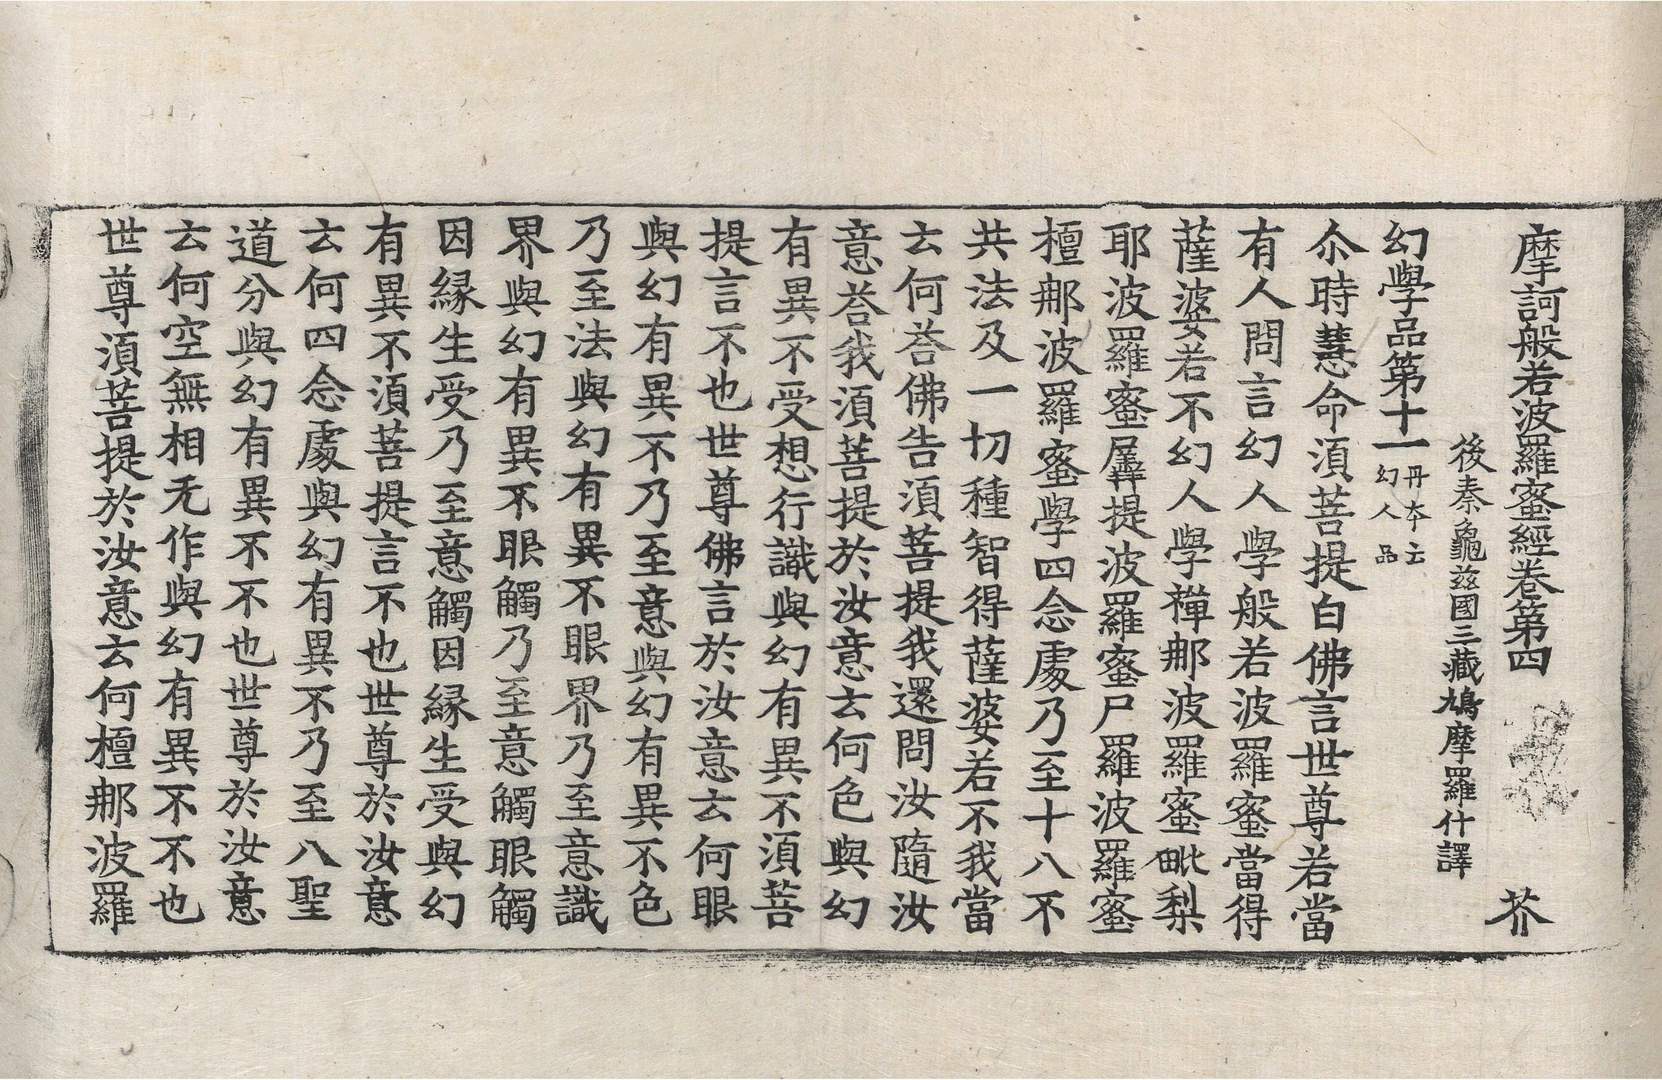 摩訶般若波羅蜜經卷第四 芥
後秦龜茲國三藏鳩摩羅什譯
幻學品第十一 丹本云幻人品
尒時慧命須菩提白佛言世尊若當
有人問言幻人學般若波羅蜜當得
薩婆若不幻人學禪那波羅蜜毗梨
耶波羅蜜羼提波羅蜜尸羅波羅蜜
檀那波羅蜜學四念處乃至十八不
共法及一切種智得薩婆若不我當
云何荅佛告須菩提我還問汝隨汝
意荅我須菩提於汝意云何色與幻
有異不受想行識與幻有異不須菩
提言不也世尊佛言於汝意云何眼
與幻有異不乃至意與幻有異不色
乃至法與幻有異不眼界乃至意識
界與幻有異不眼觸乃至意觸眼觸
因緣生受乃至意觸因緣生受與幻
有異不須菩提言不也世尊於汝意
云何四念處與幻有異不乃至八聖
道分與幻有異不不也世尊於汝意
云何空無相无作與幻有異不不也
世尊須菩提於汝意云何檀那波羅